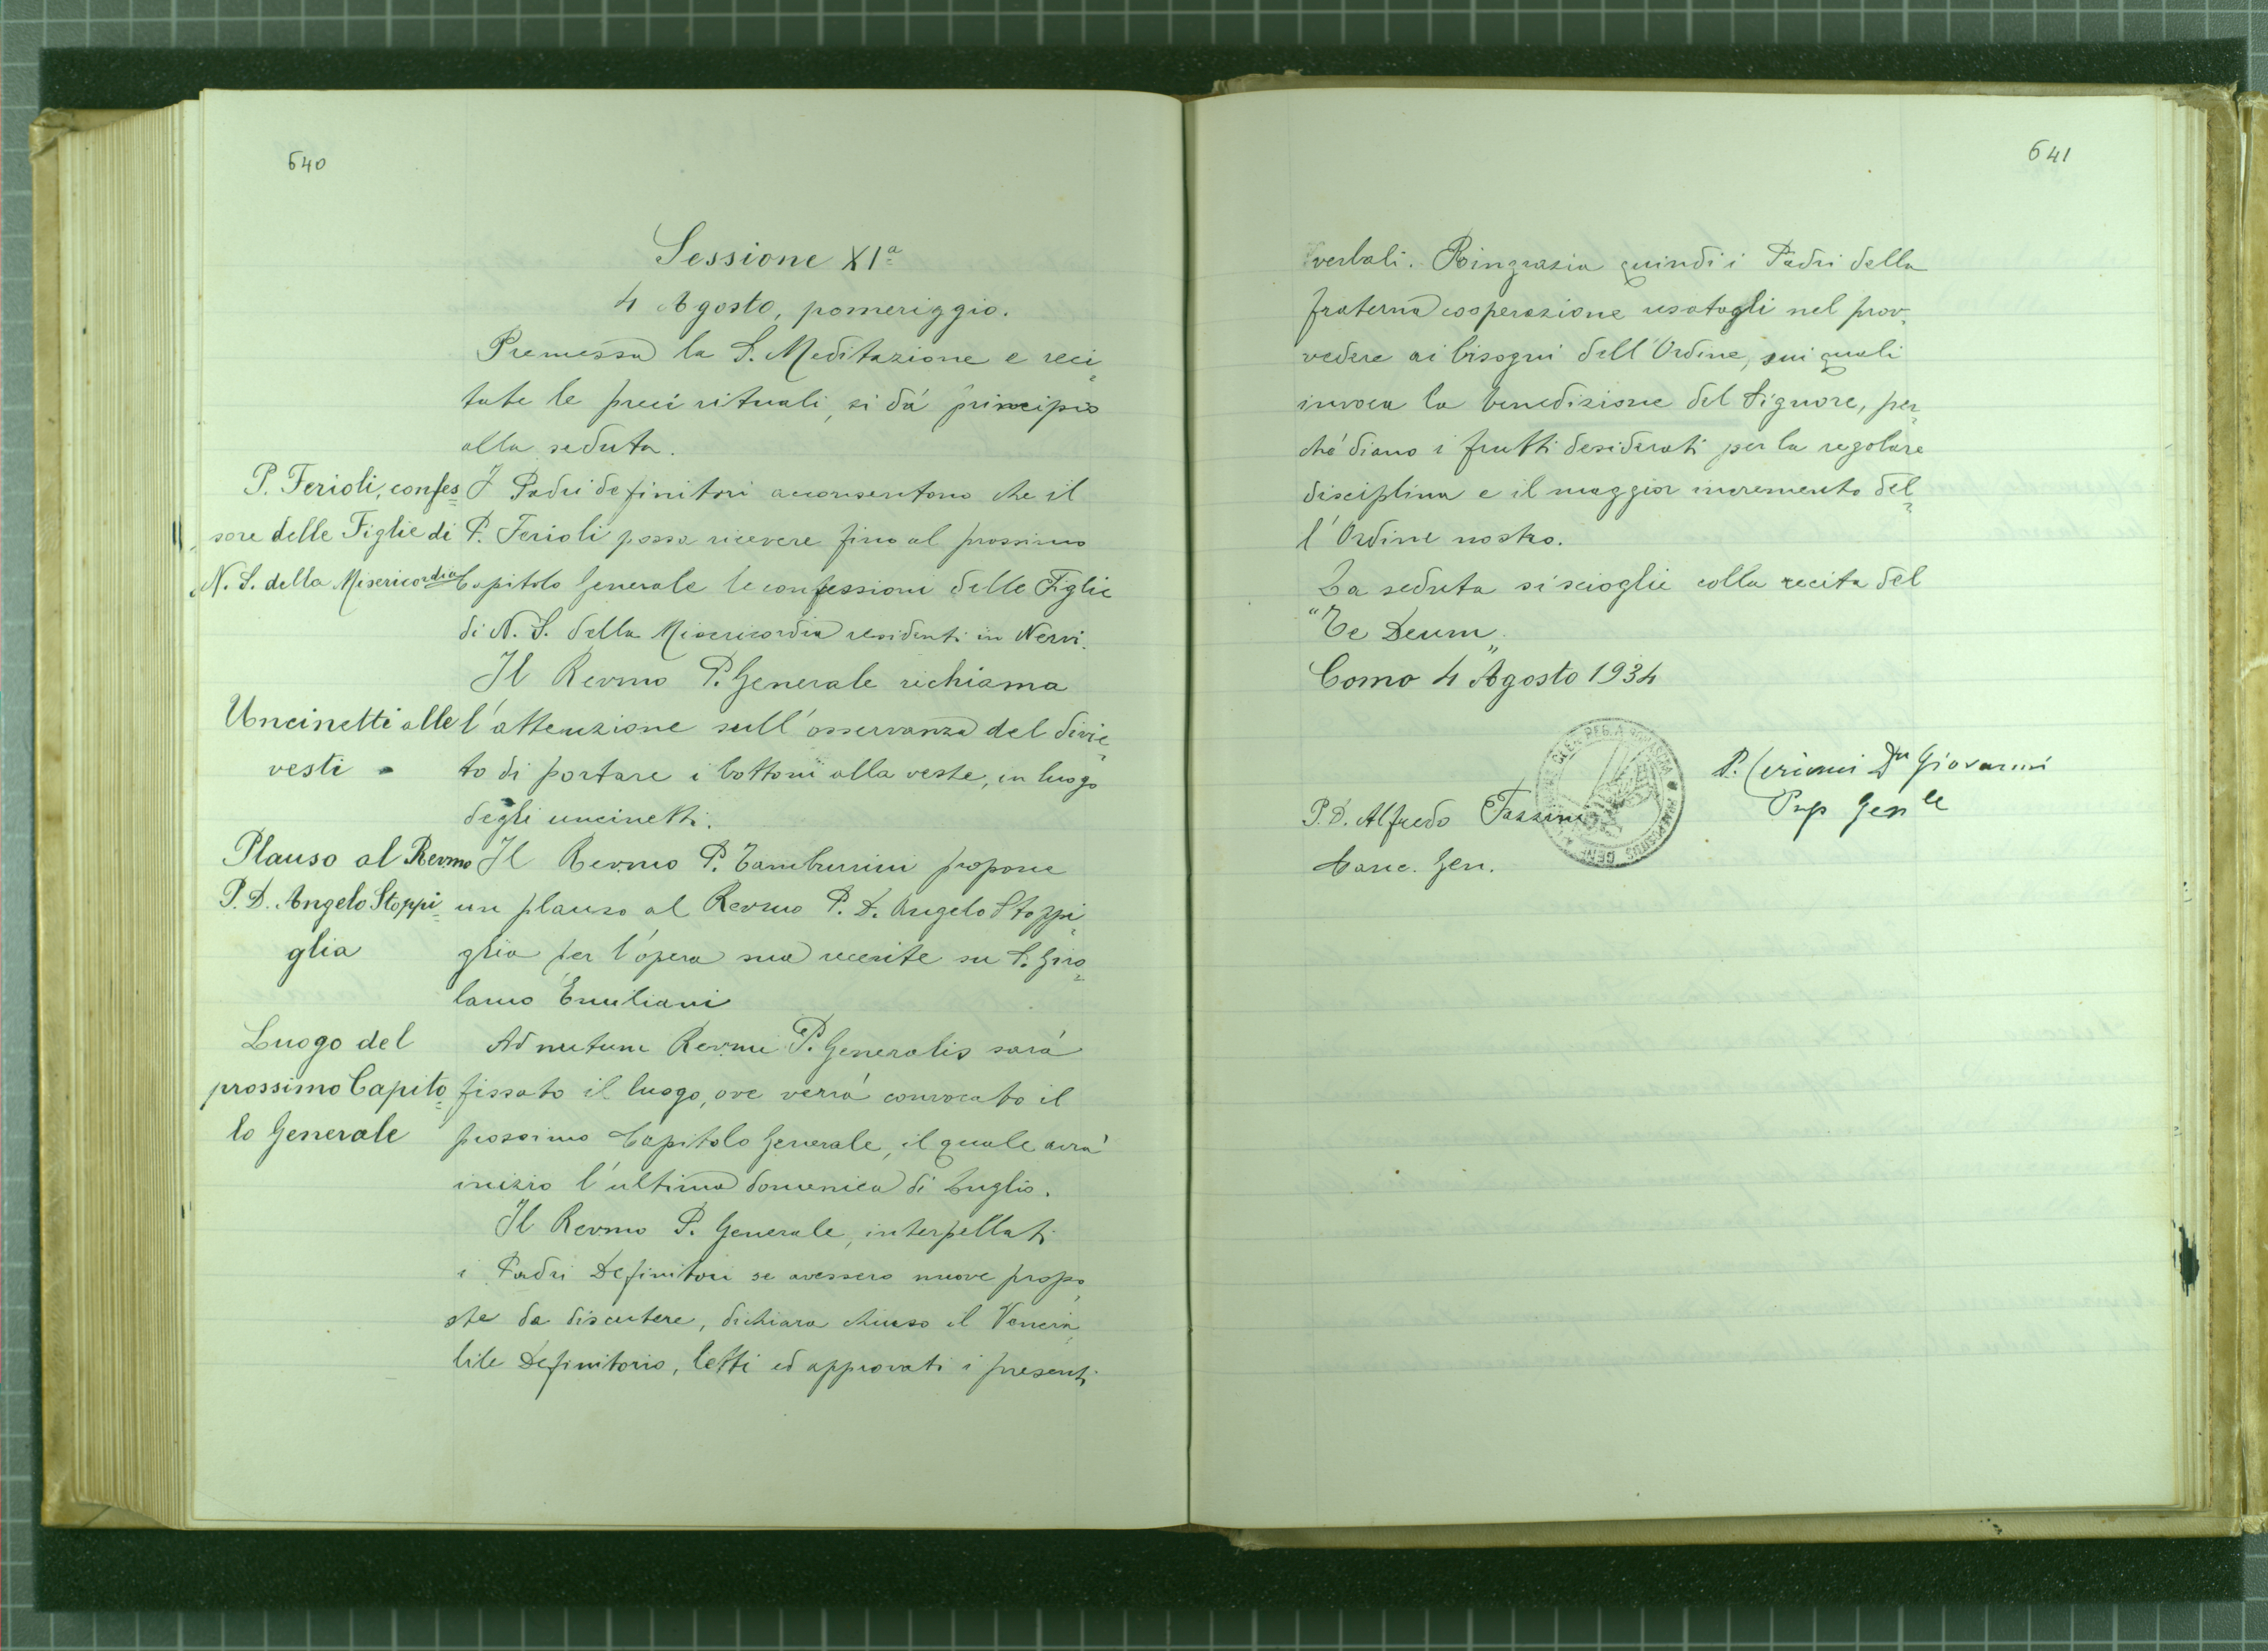 640
Sessione XIª
4 Agosto, pomeriggio.
Premessa la S. Meditazione e reci=
tate le preci rituali, si dà principio
alla seduta.
P. Ferioli, confes=
sore delle Figlie di
N. S. della Misericordia
I Padri definitori acconsentono che il
P. Ferioli possa ricevere fino al prossimo
Capitolo Generale le confessioni delle Figlie
di N. S. della Misericordia residenti in Nervi.
Il Revmo P. Generale richiama
Uncinetti alle
vesti
l'attenzione sull'osservanza del divie=
to di portare i bottoni alla veste, in luogo
degli uncinetti.
Plauso al Revmo
P. D. Angelo Stoppi=
glia
Il Revmo P. Tamburrini propone
un plauso al Revmo P. D. Angelo Stoppi=
glia per l'opera sua recente su S. Giro=
lamo Emiliani
Luogo del
prossimo Capito=
lo Generale
Ad nutum Revmi P. Generalis sarà
fissato il luogo, ove verrà convocato il
prossimo Capitolo Generale, il quale avrà
inizio l'ultima domenica di Luglio.
Il Revmo P. Generale, interpellati
i Padri Definitori se avessero nuove propo=
ste da discutere, dichiara chiuso il Venera=
bile Definitorio, letti ed approvati i presenti
641
verbali. Ringrazia quindi i Padri della
fraterna cooperazione usatagli nel prov=
vedere ai bisogni dell'Ordine, sui quali
invoca la benedizione del Signore, per=
chè diano i frutti desiderati per la regolare
disciplina e il maggior incremento del=
l'Ordine nostro.
La seduta si scioglie colla recita del
"Te Deum„.
Como 4 Agosto 1934
P. Ceriani Dn Giovanni
Prep Genle
P. D. Alfredo Fazzini
Canc. Gen.